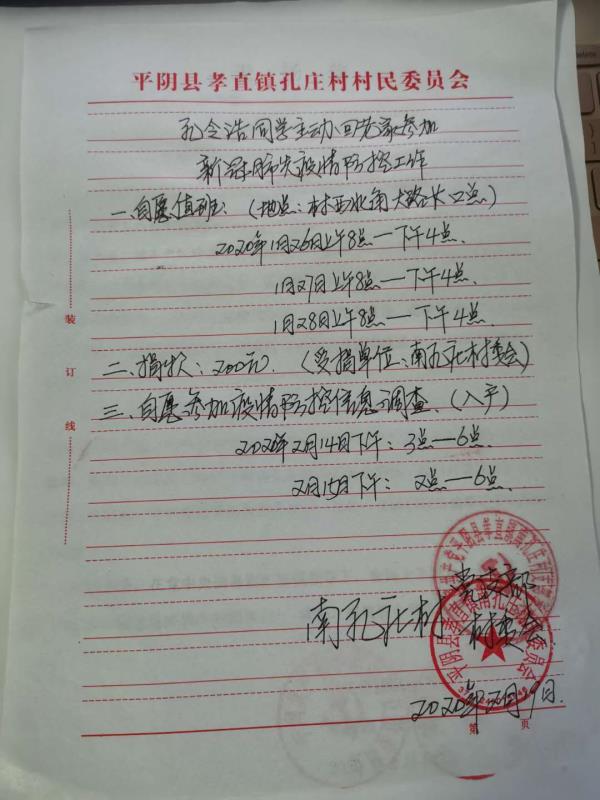 平阴县孝直镇孔庄村村民委员会
孔令浩同学主动回老家参加
新冠肺炎疫情防控工作
一、自愿值班：（地点：村西北角大路卡口点）
2020年1月26日上午8点—下午4点.
1月27日上午8点—下午4点.
1月28日上午8点—下午4点.
二、捐款：200元.（受捐单位：南孔庄村委会）
三、自愿参加疫情防控信息调查.（入户）
2020年2月14日下午：3点—6点.
2月15日下午：2点—6点.
装
订
线
党支部
南孔庄村 村委会
2020年2月 日.
第 页